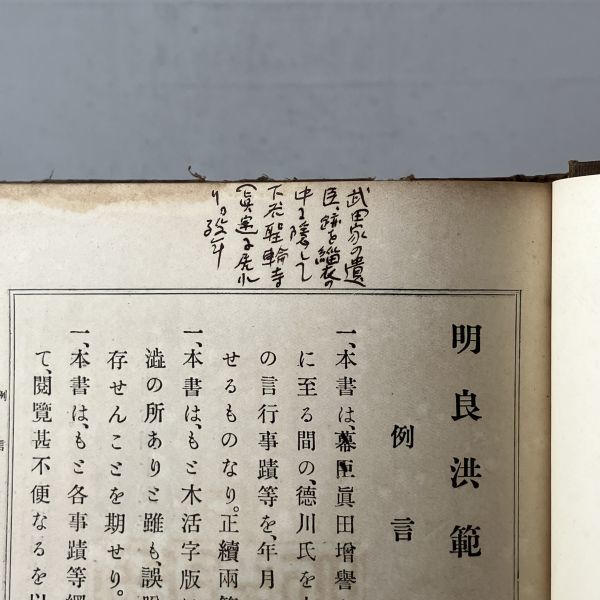 武田家の遺
臣、跡を緇衣の
中に隠して
下総聖輪寺
(真言)に居れ
り
明良洪範
例言
一、本書は、幕臣眞田增譽
に至る間の、德川氏を
の言行事蹟等を、年月
せるものなり。正續兩
一、本書は、もと木活字版
澁の所ありと雖も、誤
存せんことを期せり。
一、本書は、もと各事蹟等
て、閱覽甚不便なるを以
例言